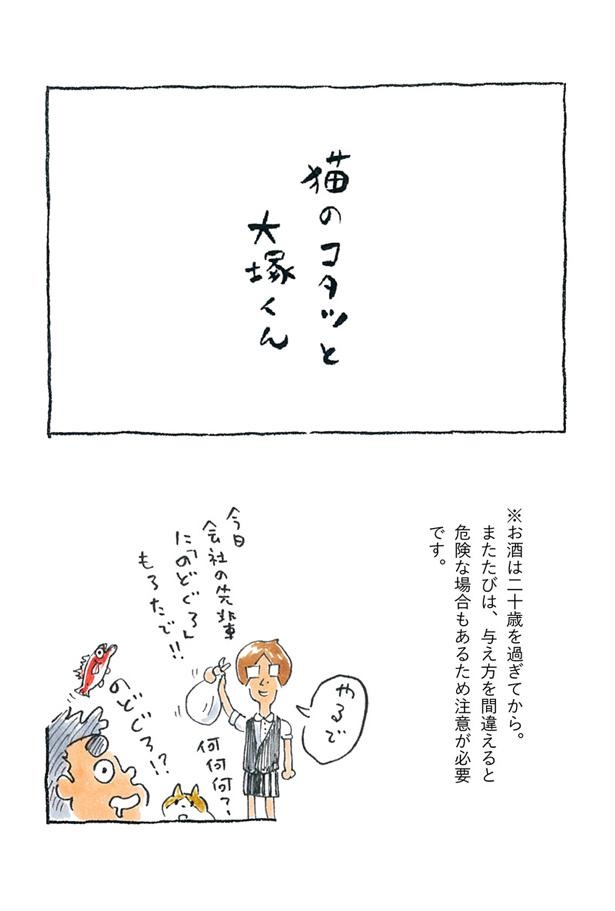 猫のコタツと
大塚くん
※お酒は二十歳を過ぎてから。
またたびは、与え方を間違えると
危険な場合もあるため注意が必要
です。
やるで
今日
会社の先輩
に「のどぐろ」
もろたで!!
何何何?
のどぐろ!?